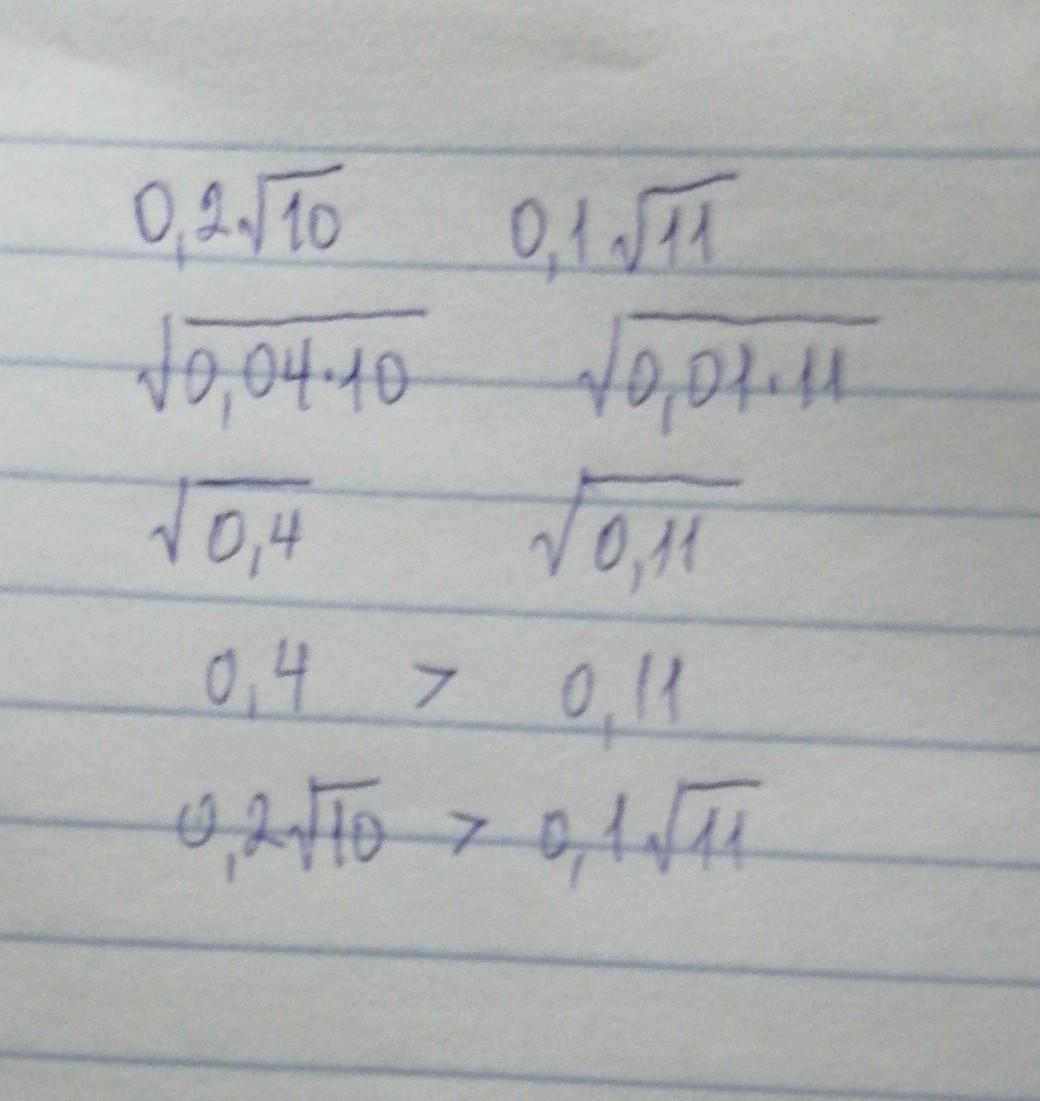 0,2√10 0,1√11
√0,04·10 √0,01·11
√0,4 √0,11
0,4 > 0,11
0,2√10 > 0,1√11